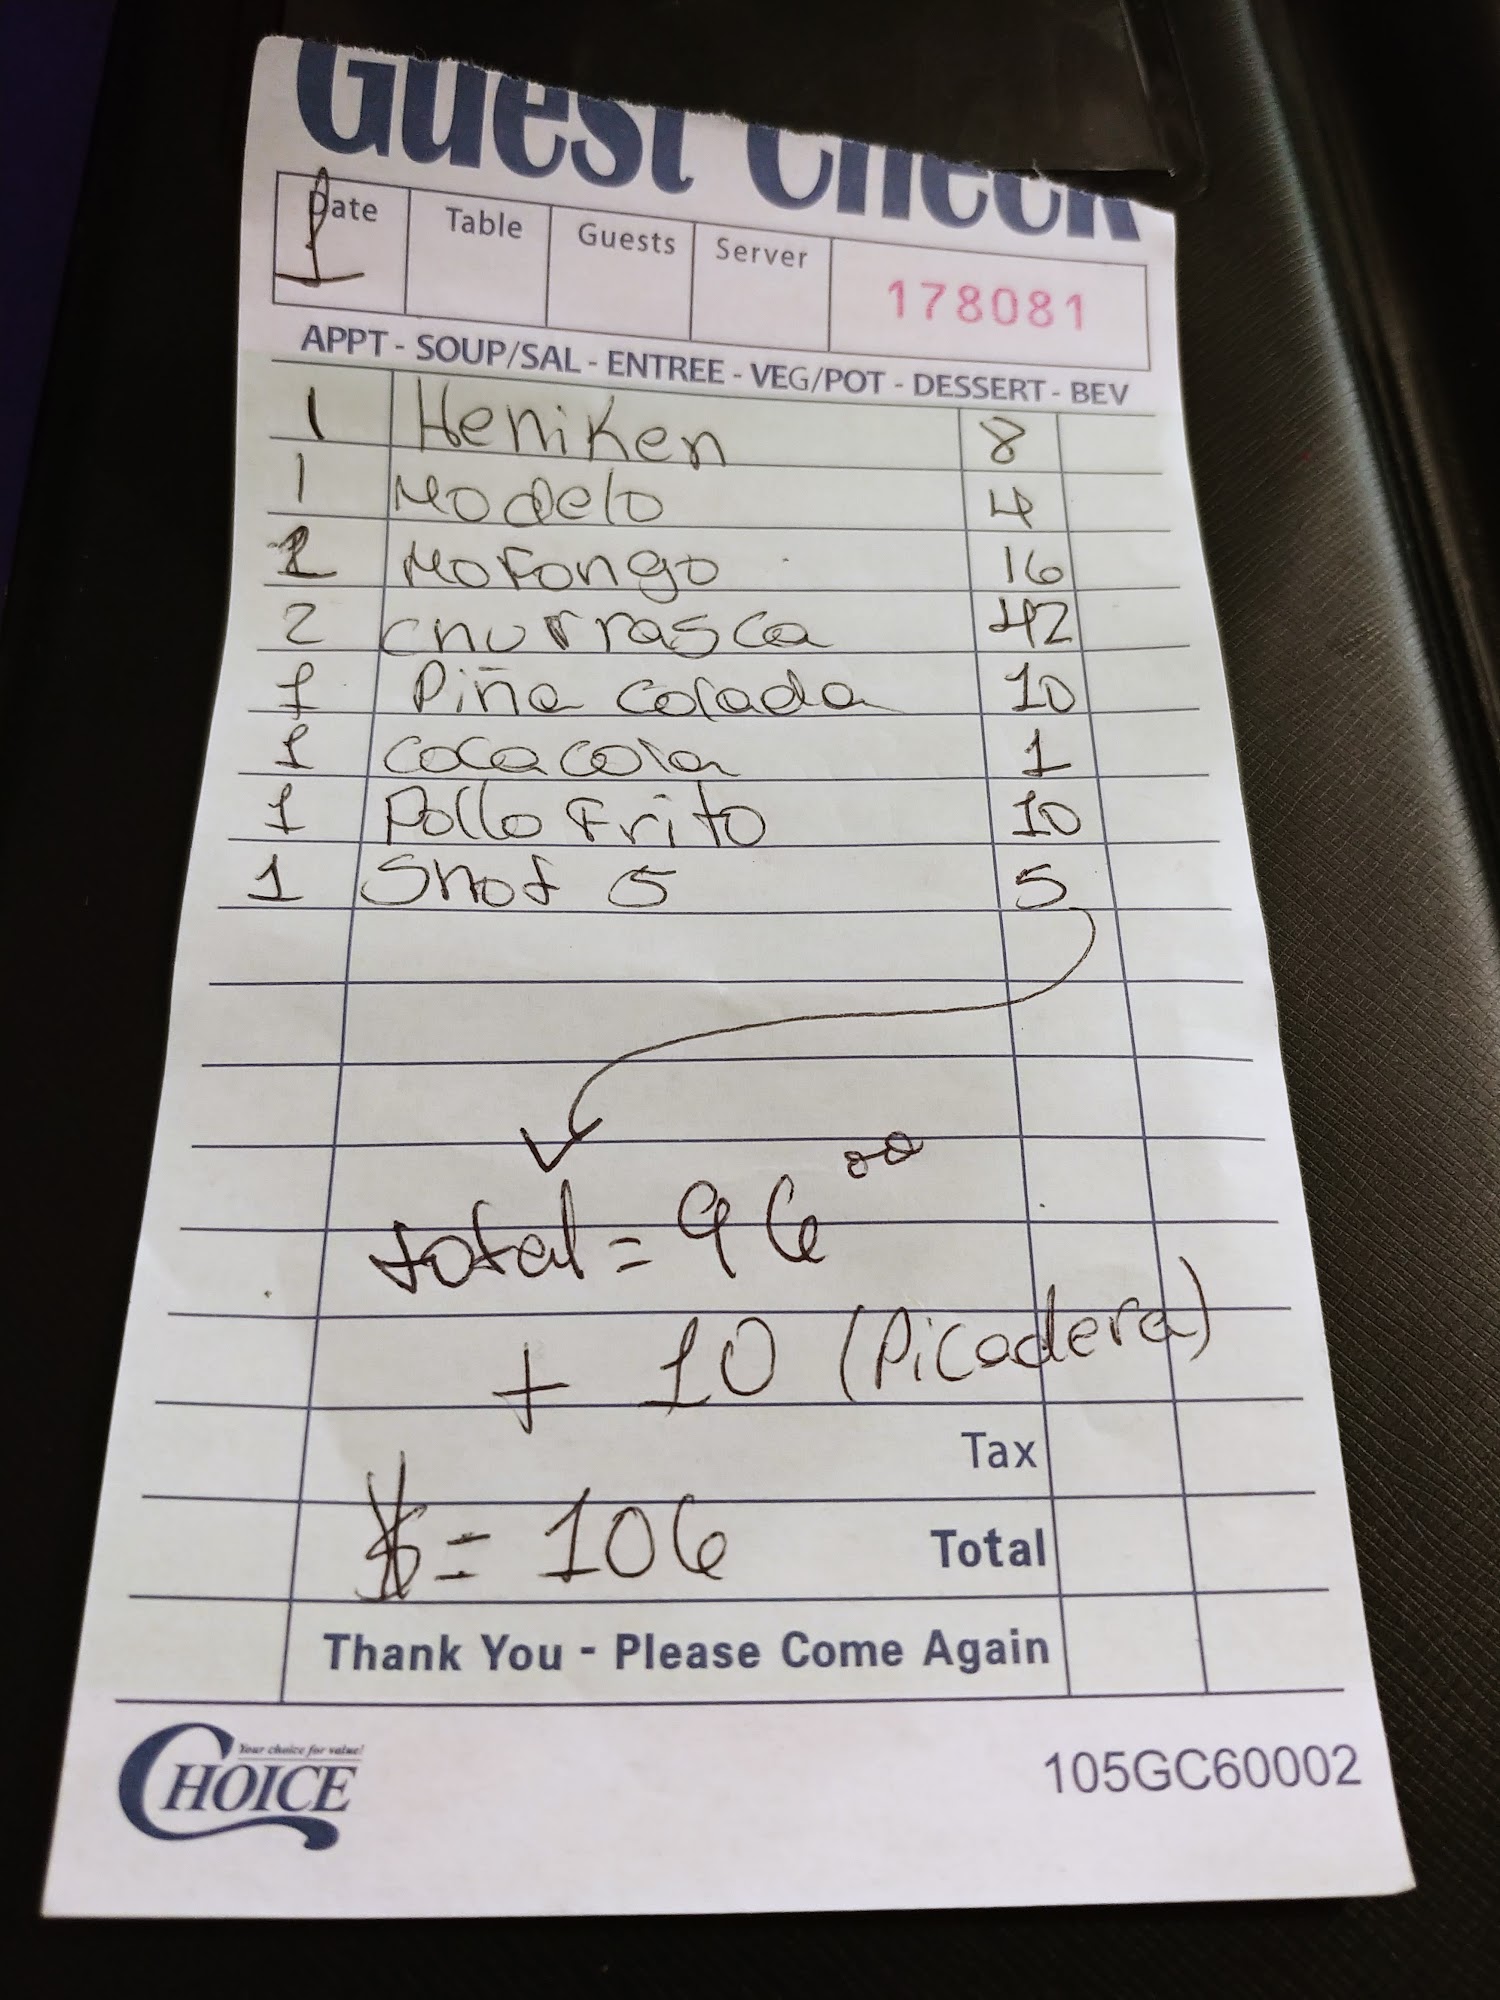 Guest Check
Date Table Guests Server
1 178081
APPT - SOUP/SAL - ENTREE - VEG/POT - DESSERT - BEV
1 Heniken 8
1 Modelo 4
1 Mofongo 16
2 Churrasca 42
1 Piña Colada 10
1 Coca cola 1
1 Pollo Frito 10
1 Shot 5 5
total = 96 00
+ 10 (Picadera)
Tax
$ = 106 Total
Thank You - Please Come Again
Your choice for value!
CHOICE 105GC60002